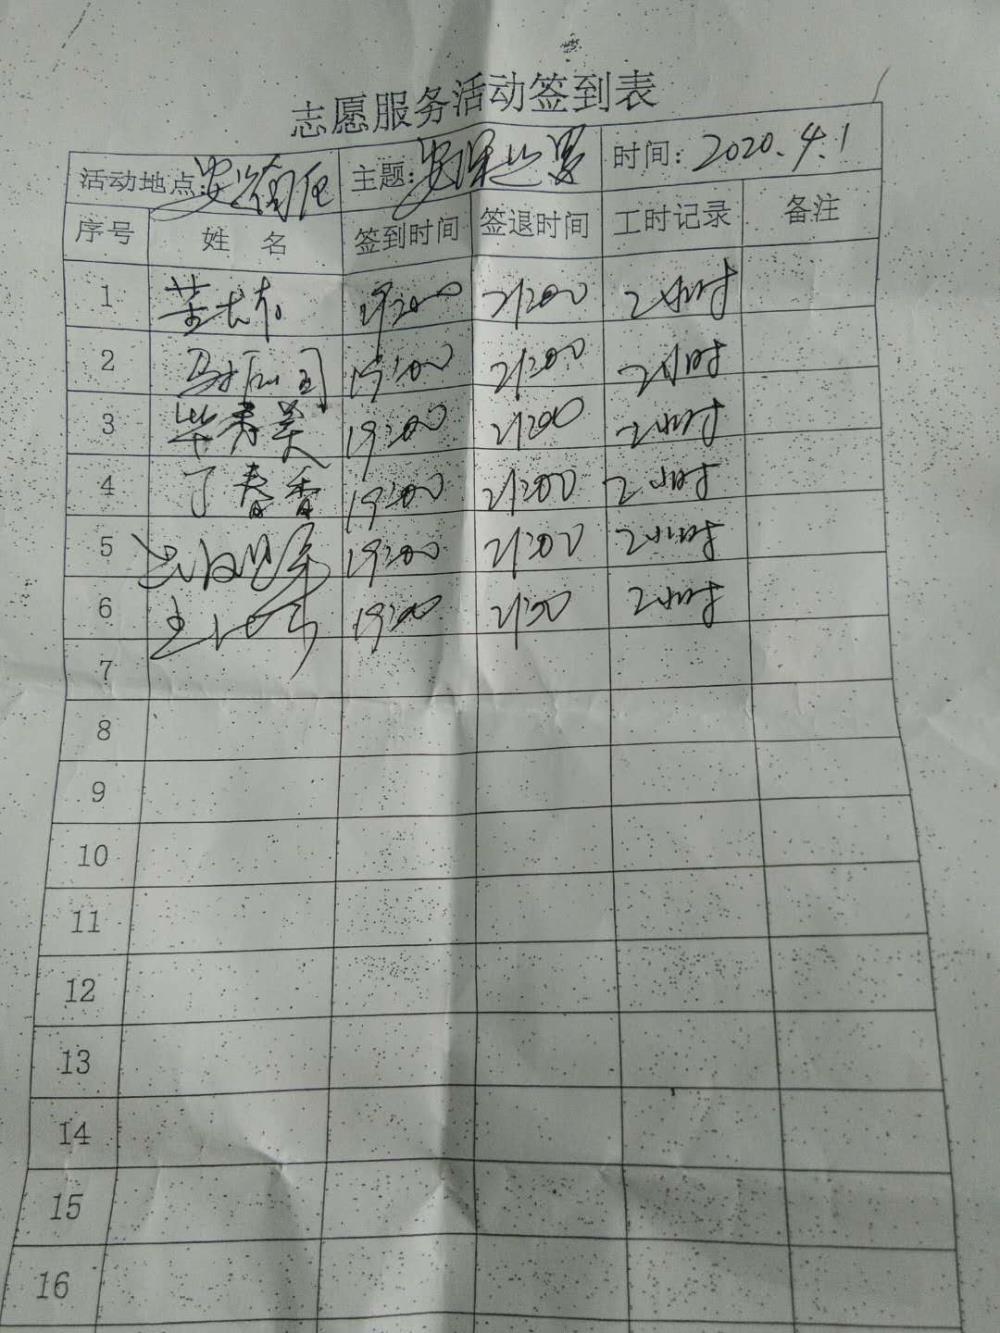 志愿服务活动签到表
活动地点: 主题: 时间: 2020.4.1
序号 姓 名 签到时间 签退时间 工时记录 备注
1 19:00 21:00 2小时
2 19:00 21:00 2小时
3 毕秀美 19:00 21:00 2小时
4 丁春香 19:00 21:00 2小时
5 19:00 21:00 2小时
6 19:00 21:00 2小时
7
8
9
10
11
12
13
14
15
16